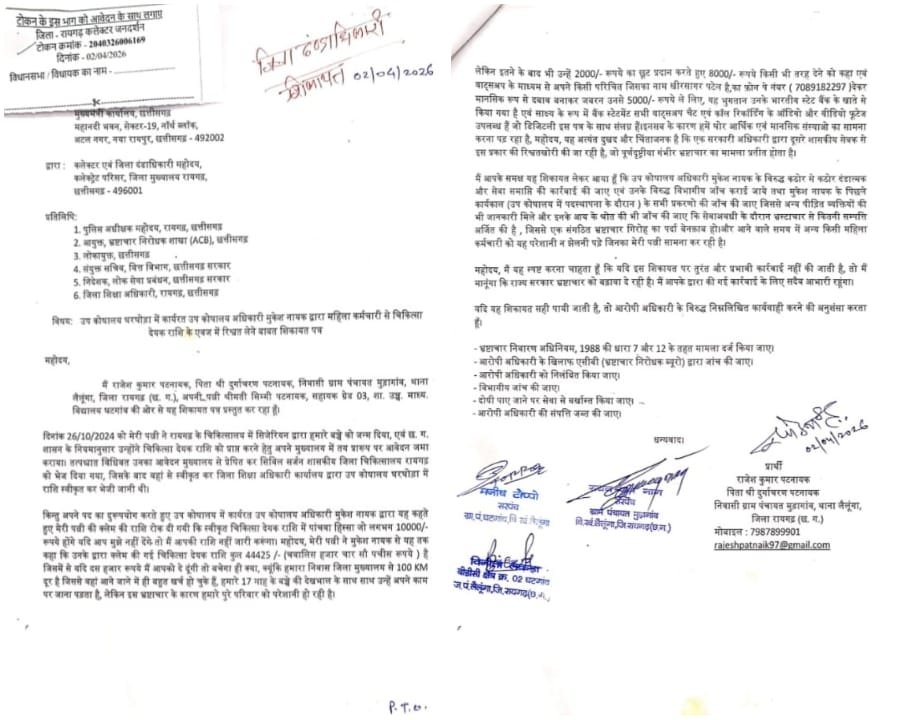 टोकन के इस भाग को आवेदन के साथ लगाए
जिला - रायगढ़ कलेक्टर जनदर्शन
टोकन क्रमांक - 2040326006169
दिनांक - 02/04/2026
विधानसभा / विधायक का नाम -
02/04/2026
मुख्यमंत्री कार्यालय, छत्तीसगढ़
महानदी भवन, सेक्टर-19, नॉर्थ ब्लॉक,
अटल नगर, नया रायपुर, छत्तीसगढ़ - 492002
द्वारा : कलेक्टर एवं जिला दंडाधिकारी महोदय,
कलेक्ट्रेट परिसर, जिला मुख्यालय रायगढ़,
छत्तीसगढ़ - 496001
प्रतिलिपि:
1. पुलिस अधीक्षक महोदय, रायगढ़, छत्तीसगढ़
2. आयुक्त, भ्रष्टाचार निरोधक शाखा (ACB), छत्तीसगढ़
3. लोकायुक्त, छत्तीसगढ़
4. संयुक्त सचिव, वित्त विभाग, छत्तीसगढ़ सरकार
5. निदेशक, लोक सेवा प्रबंधन, छत्तीसगढ़ सरकार
6. जिला शिक्षा अधिकारी, रायगढ़, छत्तीसगढ़
विषय: उप कोषालय घरघोडा में कार्यरत उप कोषालय अधिकारी मुकेश नायक द्वारा महिला कर्मचारी से चिकित्सा
देयक राशि के एवज में रिश्वत लेने बाबत शिकायत पत्र
महोदय,
मैं राजेश कुमार पटनायक, पिता श्री दुर्गाचरण पटनायक, निवासी ग्राम पंचायत मुड़ागांव, थाना
लैलूंगा, जिला रायगढ़ (छ. ग.), अपनी पत्नी श्रीमती सिम्मी पटनायक, सहायक ग्रेड 03, शा. उच्च. माध्य.
विद्यालय घटगांव की ओर से यह शिकायत पत्र प्रस्तुत कर रहा हूँ।
दिनांक 26/10/2024 को मेरी पत्नी ने रायगढ के चिकित्सालय में सिजेरियन द्वारा हमारे बच्चे को जन्म दिया, एवं छ. ग.
शासन के नियमानुसार उन्होंने चिकित्सा देयक राशि को प्राप्त करने हेतु अपने मुख्यालय में तय प्रारूप पर आवेदन जमा
कराया। तत्पश्चात विधिवत उनका आवेदन मुख्यालय से प्रेषित कर सिविल सर्जन शासकीय जिला चिकित्सालय रायगढ़
को भेज दिया गया, जिसके बाद वहां से स्वीकृत कर जिला शिक्षा अधिकारी कार्यालय द्वारा उप कोषालय घरघोडा में
राशि स्वीकृत कर भेजी जानी थी।
किन्तु अपने पद का दुरूपयोग करते हुए उप कोषालय में कार्यरत उप कोषालय अधिकारी मुकेश नायक द्वारा यह कहते
हुए मेरी पत्नी की क्लेम की राशि रोक दी गयी कि स्वीकृत चिकित्सा देयक राशि में पांचवा हिस्सा जो लगभग 10000/-
रूपये होंगे यदि आप मुझे नहीं देंगे तो मैं आपकी राशि नहीं जारी करूंगा। महोदय, मेरी पत्नी ने मुकेश नायक से यह तक
कहा कि उनके द्वारा क्लेम की गई चिकित्सा देयक राशि कुल 44425 /- (चवालिस हजार चार सौ पचीस रूपये ) है
जिसमें से यदि दस हजार रूपये मैं आपको दे दूंगी तो बचेगा ही क्या, क्यूंकि हमारा निवास जिला मुख्यालय से 100 KM
दूर है जिससे वहां आने जाने में ही बहुत खर्च हो चुके हैं, हमारे 17 माह के बच्चे की देखभाल के साथ साथ उन्हें अपने काम
पर जाना पड़ता है, लेकिन इस भ्रष्टाचार के कारण हमारे पुरे परिवार को परेशानी हो रही है।
P.T.O.
लेकिन इतने के बाद भी उन्हें 2000/- रूपये का छूट प्रदान करते हुए 8000/- रूपये किसी भी तरह देने को कहा एवं
वाट्सअप के माध्यम से अपने किसी परिचित जिसका नाम धीरसागर पटेल है,का फ़ोन पे नंबर ( 7089182297 )देकर
मानसिक रूप से दबाव बनाकर जबरन उनसे 5000/- रूपये ले लिए, यह भुगतान उनके भारतीय स्टेट बैंक के खाते से
किया गया है एवं साक्ष्य के रूप में बैंक स्टेटमेंट सभी वाट्सअप चैट एवं कॉल रिकॉर्डिंग के ऑडियो और वीडियो फुटेज
उपलब्ध हैं जो डिजिटली इस पत्र के साथ संलग्न हैं।इनसब के कारण हमें घोर आर्थिक एवं मानसिक संस्याओ का सामना
करना पड़ रहा है, महोदय, यह अत्यंत दुखद और चिंताजनक है कि एक सरकारी अधिकारी द्वारा दूसरे शासकीय सेवक से
इस प्रकार की रिश्वतखोरी की जा रही है, जो पूर्णदृष्टीया गंभीर भ्रष्टाचार का मामला प्रतीत होता है।
मैं आपके समक्ष यह शिकायत लेकर आया हूँ कि उप कोषालय अधिकारी मुकेश नायक के विरूद्ध कठोर से कठोर दंडात्मक
और सेवा समाप्ति की कार्रवाई की जाए एवं उनके विरूद्ध विभागीय जाँच कराई जाये तथा मुकेश नायक के पिछले
कार्यकाल (उप कोषालय में पदस्थापना के दौरान ) के सभी प्रकरणों की जाँच की जाए जिससे अन्य पीड़ित व्यक्तियों की
भी जानकारी मिले और उनके आय के श्रोत की भी जाँच की जाए कि सेवाअवधी के दौरान भ्रस्टाचार से कितनी सम्पत्ति
अर्जित की है , जिससे एक संगठित भ्रष्टाचार गिरोह का पर्दा बेनक़ाब हो।और आने वाले समय में अन्य किसी महिला
कर्मचारी को यह परेशानी न झेलनी पड़े जिनका मेरी पत्नी सामना कर रही है।
महोदय, मैं यह स्पष्ट करना चाहता हूँ कि यदि इस शिकायत पर तुरंत और प्रभावी कार्रवाई नहीं की जाती है, तो मैं
मानूंगा कि राज्य सरकार भ्रष्टाचार को बढ़ावा दे रही है। मैं आपके द्वारा की गई कार्रवाई के लिए सदैव आभारी रहूंगा।
यदि यह शिकायत सही पायी जाती है, तो आरोपी अधिकारी के विरूद्ध निम्नलिखित कार्यवाही करने की अनुसंशा करता
हूँ।
- भ्रष्टाचार निवारण अधिनियम, 1988 की धारा 7 और 12 के तहत मामला दर्ज किया जाए।
- आरोपी अधिकारी के खिलाफ एसीबी (भ्रष्टाचार निरोधक ब्यूरो) द्वारा जांच की जाए।
- आरोपी अधिकारी को निलंबित किया जाए।
- विभागीय जांच की जाए।
- दोषी पाए जाने पर सेवा से बर्खास्त किया जाए।
- आरोपी अधिकारी की संपत्ति जब्त की जाए।
धन्यवाद।
02/04/2026
प्रार्थी
राजेश कुमार पटनायक
पिता श्री दुर्गाचरण पटनायक
निवासी ग्राम पंचायत मुड़ागांव, थाना लैलूंगा,
जिला रायगढ़ (छ. ग.)
मोबाइल : 7987899901
rajeshpatnaik97@gmail.com
मनीष टोप्पो
सरपंच
सरपंच
ग्राम पंचायत मुड़ागांव
वि.खं.लैलूंगा,जि.रायगढ़(छ.ग.)
बीडीसी क्षेत्र क्रं. 02 घटगांव
ज.पं.लैलूंगा,जि.रायगढ़(छ.ग.)